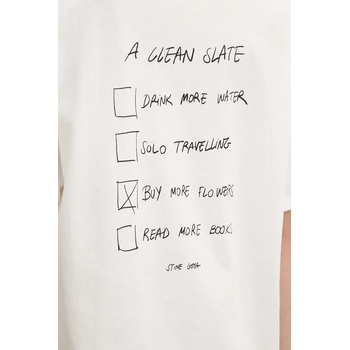 A CLEAN SLATE
DRINK MORE WATER
SOLO TRAVELLING
BUY MORE FLOWERS
READ MORE BOOKS
STINE GOYA